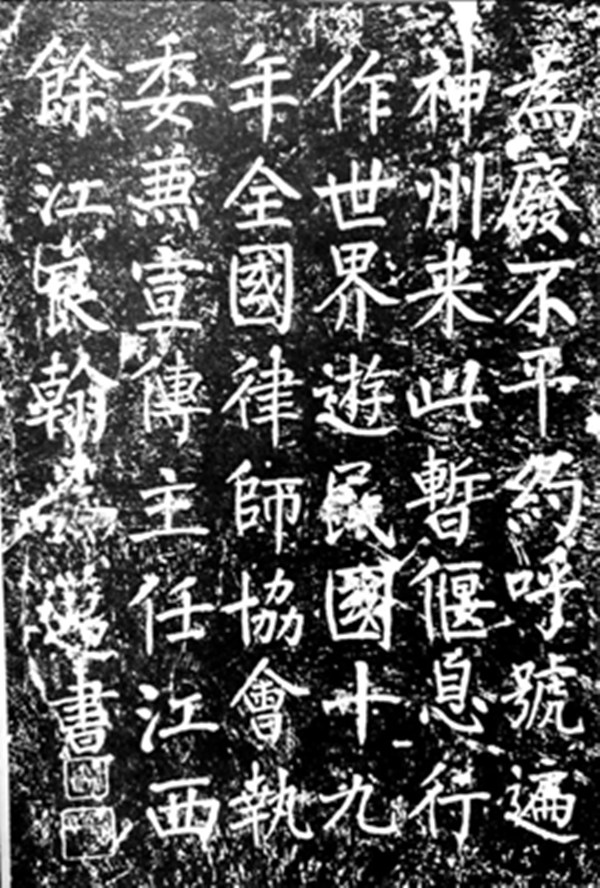 為廢不平約呼號遍
神州来此暫偃息行
作世界遊民國十九
年全國律師協會執
委兼宣傳主任江西
餘江翰書